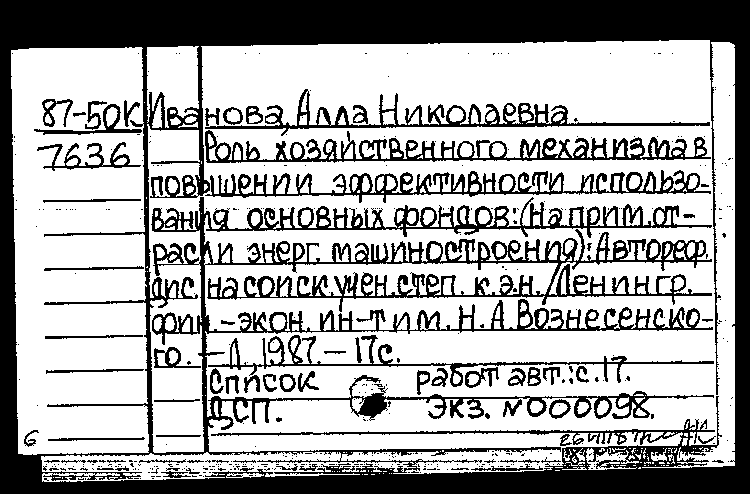 87-50К Иванова, Алла Николаевна.
7636 Роль хозяйственного механизма в
повышении эффективности использо-
вания основных фондов: (На прим. от-
расли энерг. машиностроения): Автореф.
дис. на соиск. учен. степ. к. э. н. / Ленингр.
фин.-экон. ин-т им. Н. А. Вознесенско-
го. – Л., 1987. – 17 с.
Список работ авт.: с. 17.
ДСП. Экз. N000098.
6